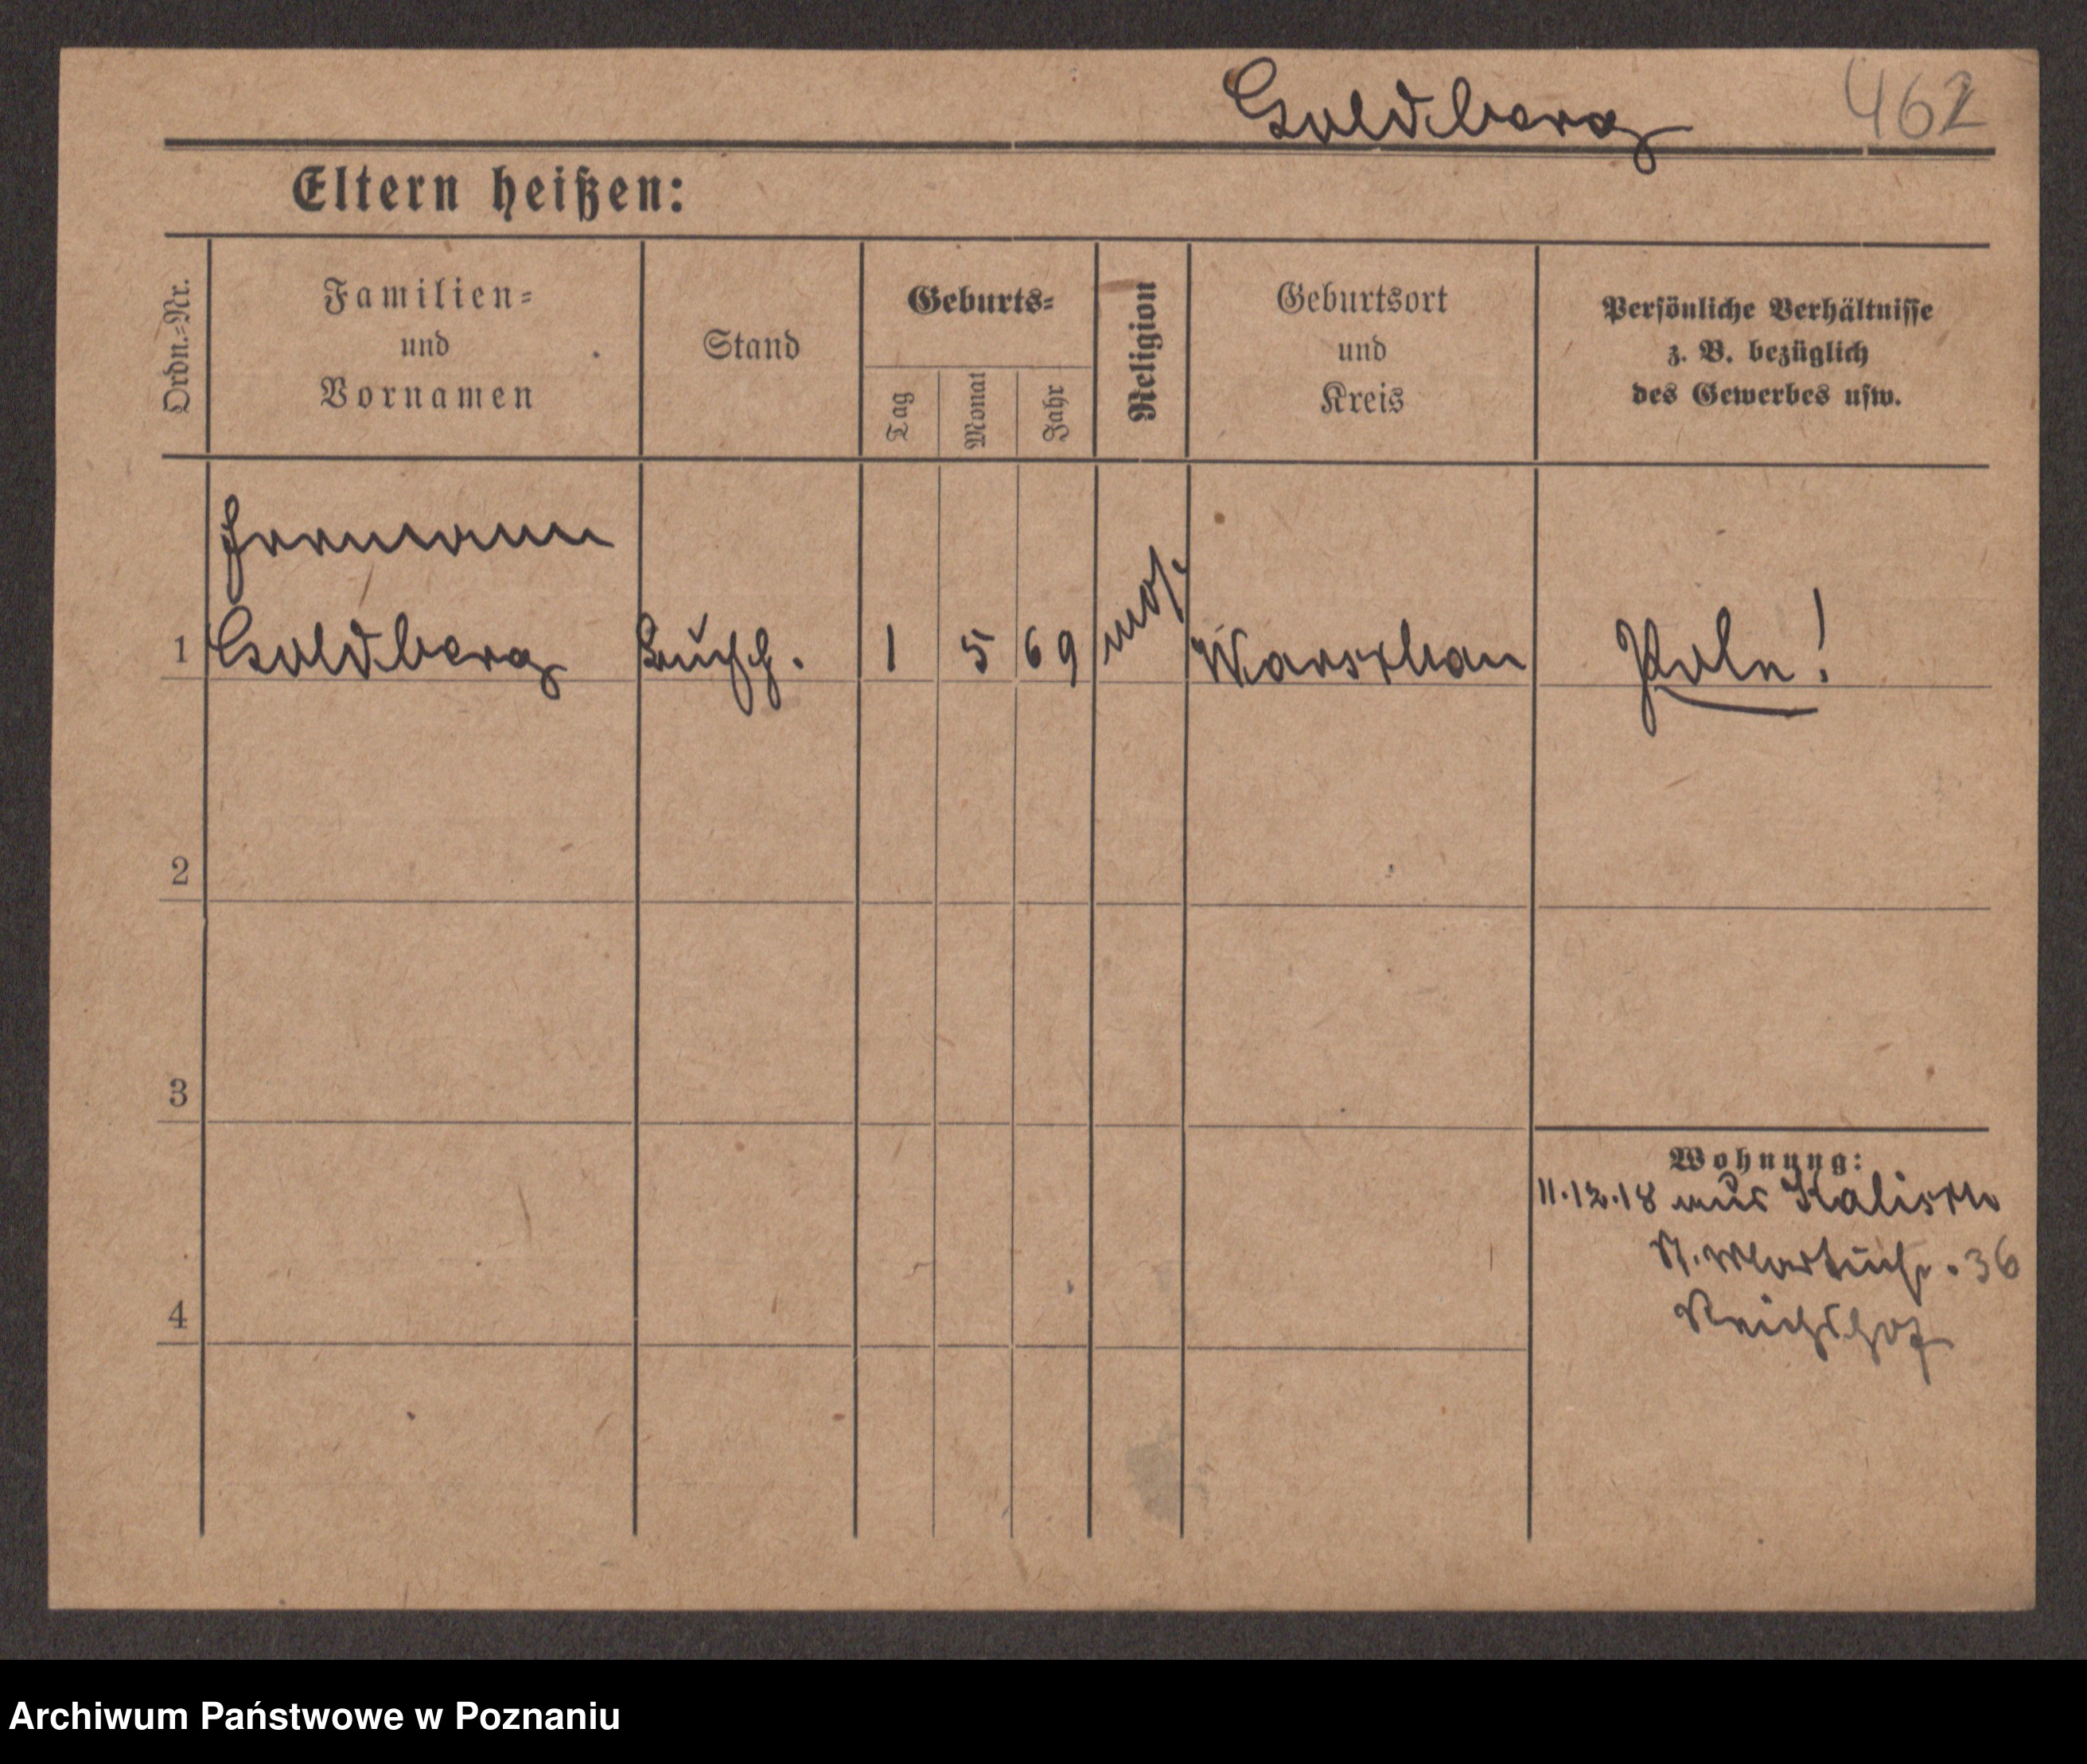 Goldberg 462
Eltern heißen:
Ordn.-Nr.
Familien-
und
Vornamen
Stand
Geburts-
Tag
Monat
Jahr
Religion
Geburtsort
und
Kreis
Persönliche Verhältnisse
z. B. bezüglich
des Gewerbes usw.
Hermann
1 Goldberg 1 5 69 mos. Warschau Pole!
2
3
Wohnung:
11.12.18 aus Kalisch
St. Martinstr. 36
4
Reichshof
Archiwum Państwowe w Poznaniu